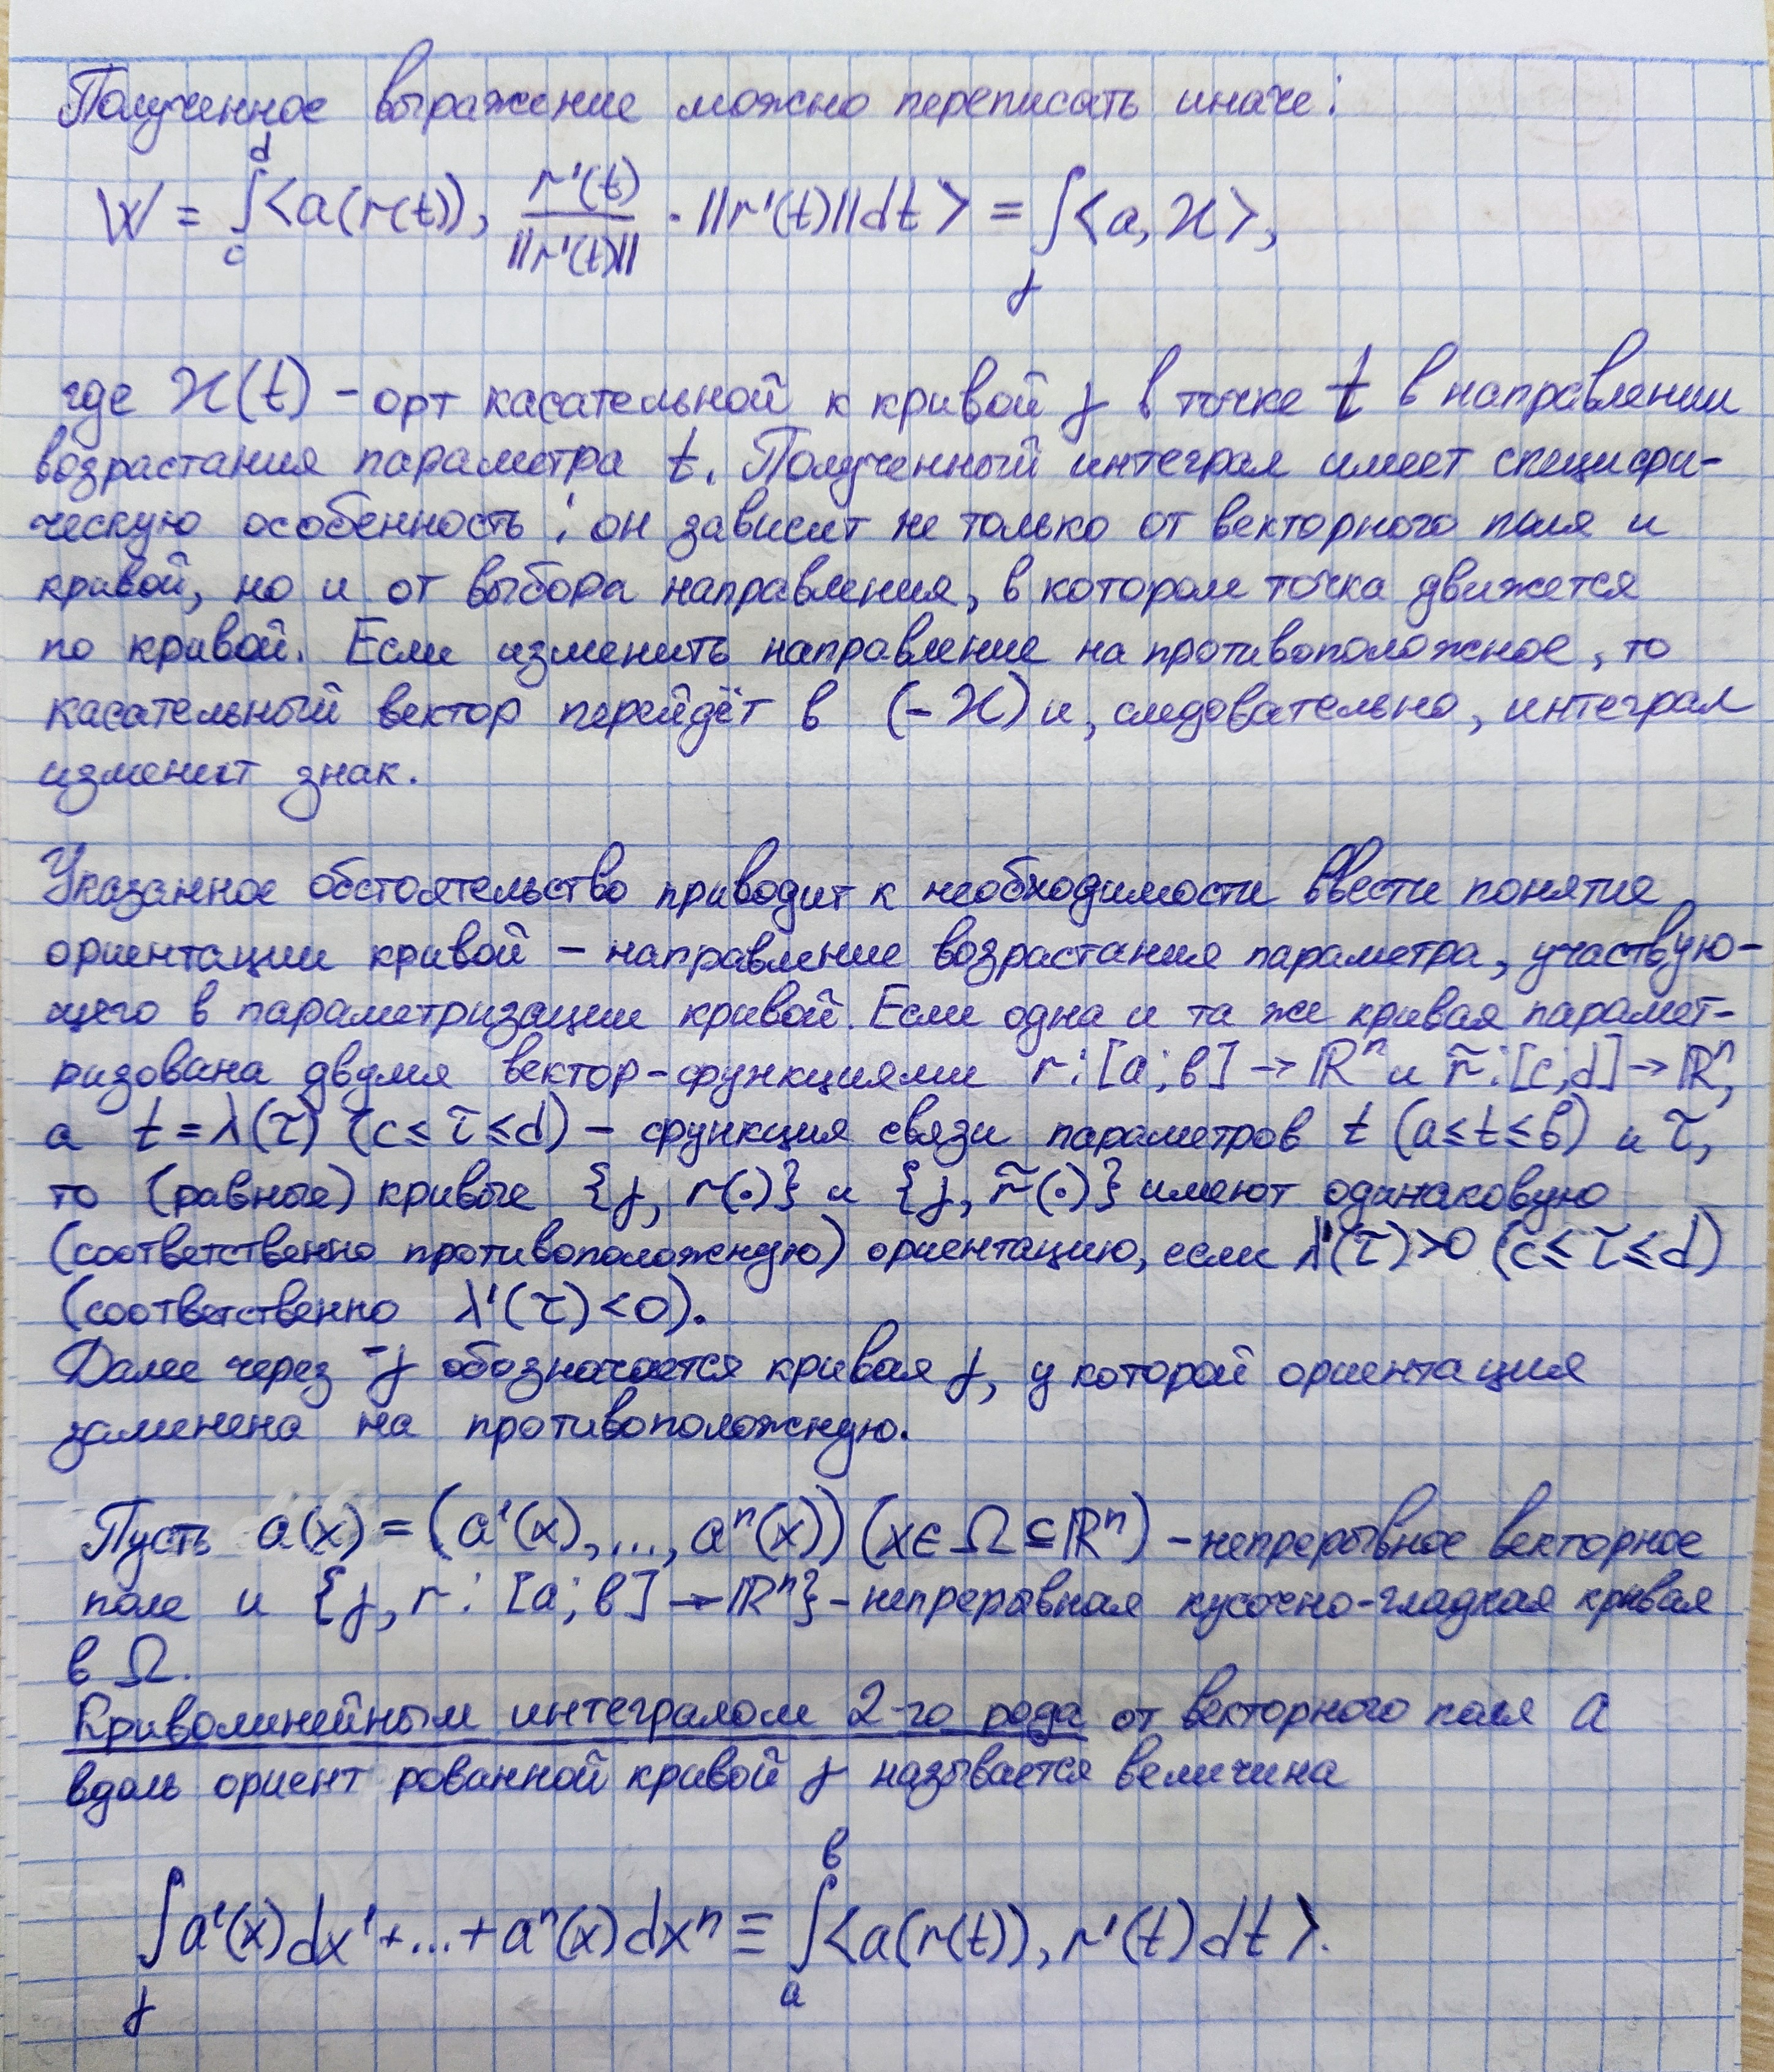 Полученное выражение можно переписать иначе:
W = ∫_c^d <a(r(t)), r'(t)/||r'(t)|| · ||r'(t)||dt> = ∫_γ <a, ϰ>,
где ϰ(t) – орт касательной к кривой γ в точке t в направлении
возрастания параметра t. Полученный интеграл имеет специфи-
ческую особенность: он зависит не только от векторного поля и
кривой, но и от выбора направления, в котором точка движется
по кривой. Если изменить направление на противоположное, то
касательный вектор перейдёт в (-ϰ) и, следовательно, интеграл
изменит знак.
Указанное обстоятельство приводит к необходимости ввести понятие
ориентации кривой – направление возрастания параметра, участвую-
щего в параметризации кривой. Если одна и та же кривая парамет-
ризована двумя вектор-функциями r: [a; b] → ℝⁿ и r̃: [c; d] → ℝⁿ,
а t = λ(τ) (c ≤ τ ≤ d) – функция связи параметров t (a ≤ t ≤ b) и τ,
то (равные) кривые {γ, r(·)} и {γ, r̃(·)} имеют одинаковую
(соответственно противоположную) ориентацию, если λ'(τ) > 0 (c ≤ τ ≤ d)
(соответственно λ'(τ) < 0).
Далее через -γ обозначается кривая γ, у которой ориентация
заменена на противоположную.
Пусть a(x) = (a¹(x), ..., aⁿ(x)) (x ∈ Ω ⊆ ℝⁿ) – непрерывное векторное
поле и {γ, r: [a; b] → ℝⁿ} – непрерывная кусочно-гладкая кривая
в Ω.
Криволинейным интегралом 2-го рода от векторного поля a
вдоль ориент рованной кривой γ называется величина
∫_γ a¹(x)dx¹ + ... + aⁿ(x)dxⁿ ≡ ∫_a^b <a(r(t)), r'(t)dt>.